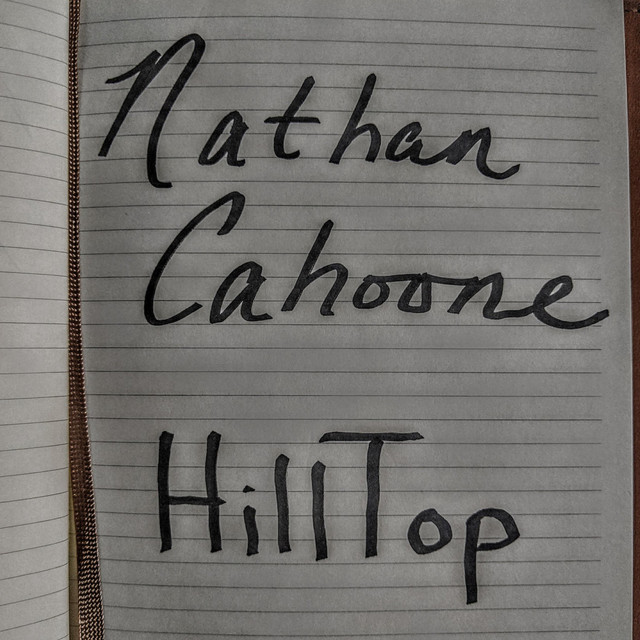 Nathan
Cahoone
HillTop